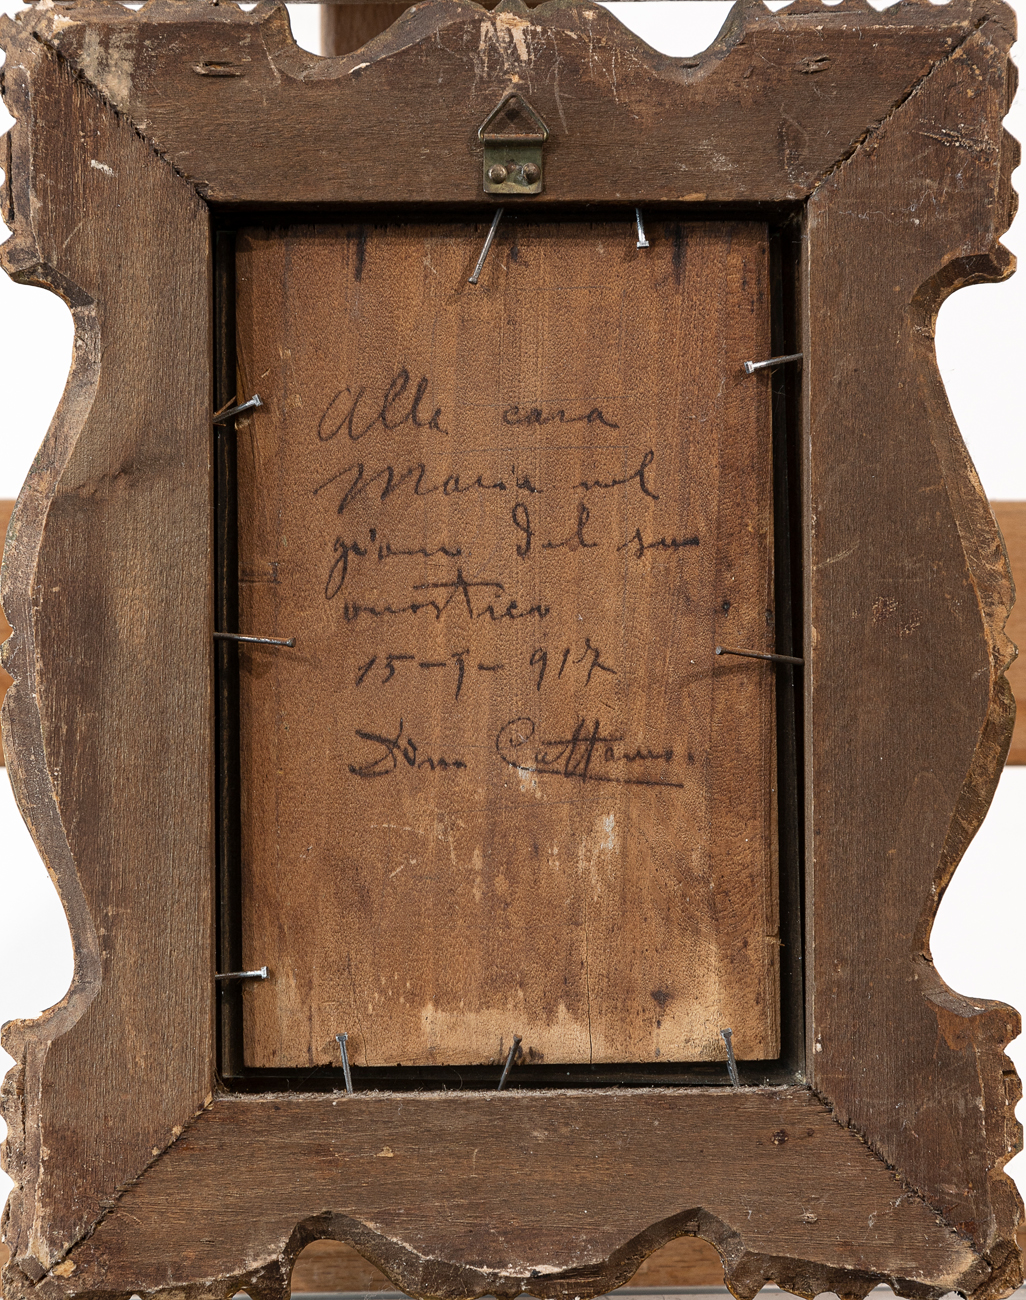 Alla cara
Maria nel
giorno del suo
onomastico
15-9-917
Dom Cattaneo.